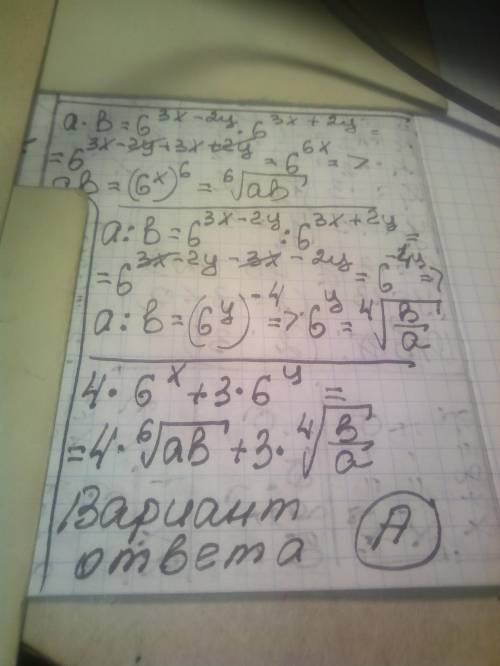 a·b=6^{3x-2y}·6^{3x+2y}=
=6^{3x-2y+3x+2y}=6^{6x}=>
ab=(6^x)^6=⁶√ab
a:b=6^{3x-2y}:6^{3x+2y}=
=6^{3x-2y-3x-2y}=6^{-4y}=>
a:b=(6^y)^{-4}=>6^y=⁴√(b/a)
4·6^x+3·6^y=
=4·⁶√ab+3·⁴√(b/a)
Вариант
ответа А